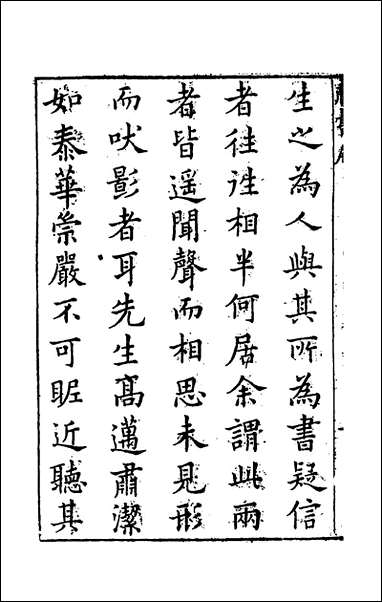 生之為人與其所為書疑信
者往往相半何居余謂此兩
者皆遥聞聲而相思未見形
而吠影者耳先生髙邁肅潔
如泰華崇嚴不可昵近聽其